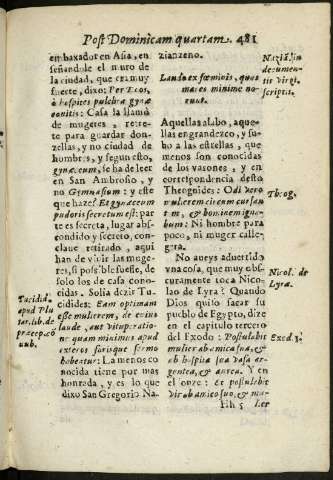 Post Dominicam quartam. 481
embaxador en Asia, en
señandole el muro de
la ciudad, que era muy
fuerte, dixo: Per Deos,
ò hospites pulchra gynæ
conitis: Casa la llamò
de mugeres, retrete
para guardar donzellas,
y no ciudad de
hombres, y segun esto,
gynæceum, se ha de leer
en San Ambrosio, y
no Gymnasium: y este
que haze? Et gynæceum
pudoris secretum est: parte
es secreta, lugar abscondido
y secreto, conclaue
retirado, aqui
han de viuir las mugeres,
si possible fuesse, de
solo los de casa conocidas.
Solia dezir Tucidides:
Eam optimam
esse mulierem, de cuius
laude, aut vituperatione
quam minimus apud
exteros forisque sermo
habeatur: La menos conocida
tiene por mas
honrada, y es lo que
dixo San Gregorio Nazianzeno.
Tucidid.
apud Plu
tar. lib. de
præcep. cō
nub.
Laudo ex fœminis, quas
mares minime norunt.
Aquellas alabo, aquellas
engrandezco, y subo
a las estrellas, que
menos son conocidas
de los varones, y en
correspondencia desto
Theognides: Odi vero
mulierem circum cursantem,
& hominem ignobilem:
Ni hombre para
poco, ni muger callegera.
No aueys aduertido
vna cosa, que muy obscuramente
toca Nicolao
de Lyra? Quando
Dios quiso sacar su
pueblo de Egypto, dize
en el capitulo tercero
del Exodo: Postulabit
mulier ab amica sua, &
ab hospita sua vasa argentea,
& aurea. Y en
el onze: Et postulabit
vir ab amico suo, & mu-
Hh 5 lier
Theog.
Nicol. de
Lyra.
Exod. 3.